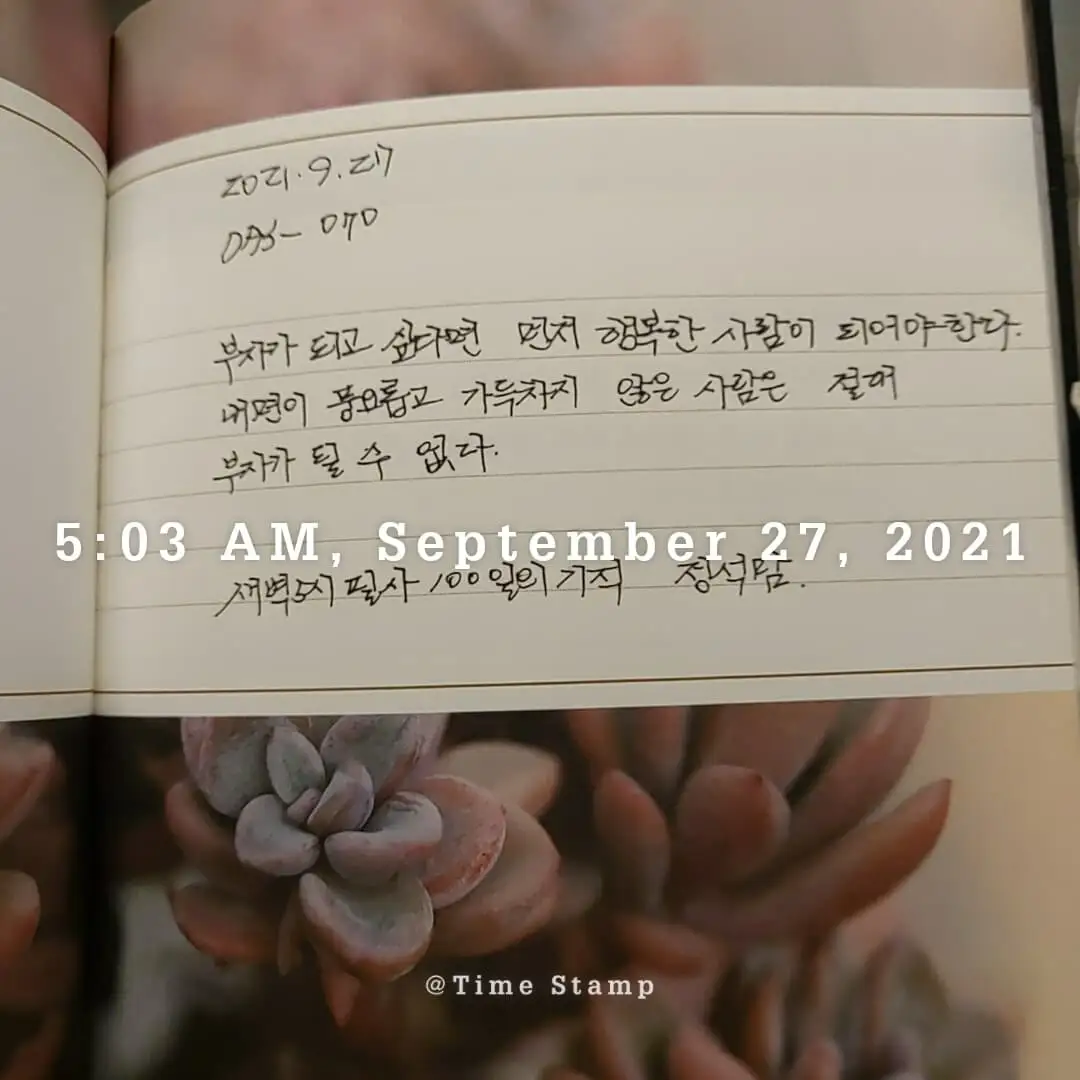 2021.9.27
DAY- 070
부자가 되고 싶다면 먼저 행복한 사람이 되어야한다.
내면이 풍요롭고 가득차지 않은 사람은 절대
부자가 될 수 없다.
5:03 AM, September 27, 2021
새벽5시 필사 100일의 기적 정석담.
@Time Stamp